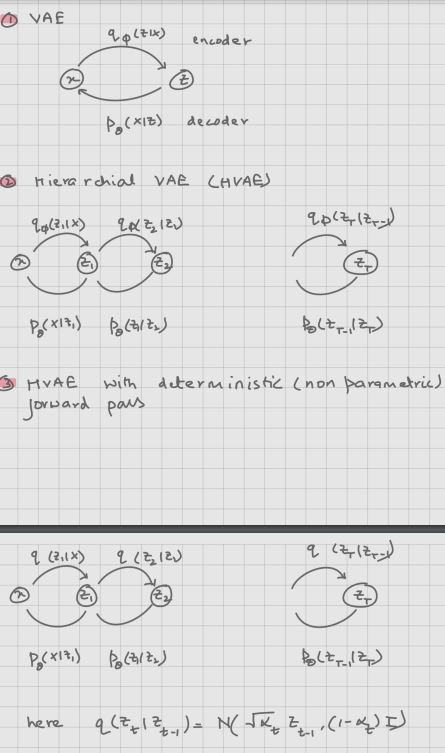 ① VAE
q_φ(z|x) encoder
x z
p_θ(x|z) decoder
② Hierarchial VAE (HVAE)
q_φ(z_1|x) q_φ(z_2|z_1) q_φ(z_T|z_{T-1})
x z_1 z_2 z_T
p_θ(x|z_1) p_θ(z_1|z_2) p_θ(z_{T-1}|z_T)
③ HVAE with deterministic (non parametric)
forward pass
q (z_1|x) q (z_2|z_1) q (z_T|z_{T-1})
x z_1 z_2 z_T
p_θ(x|z_1) p_θ(z_1|z_2) p_θ(z_{T-1}|z_T)
here q(z_t|z_{t-1}) = N(√α_t z_{t-1}, (1-α_t) I)